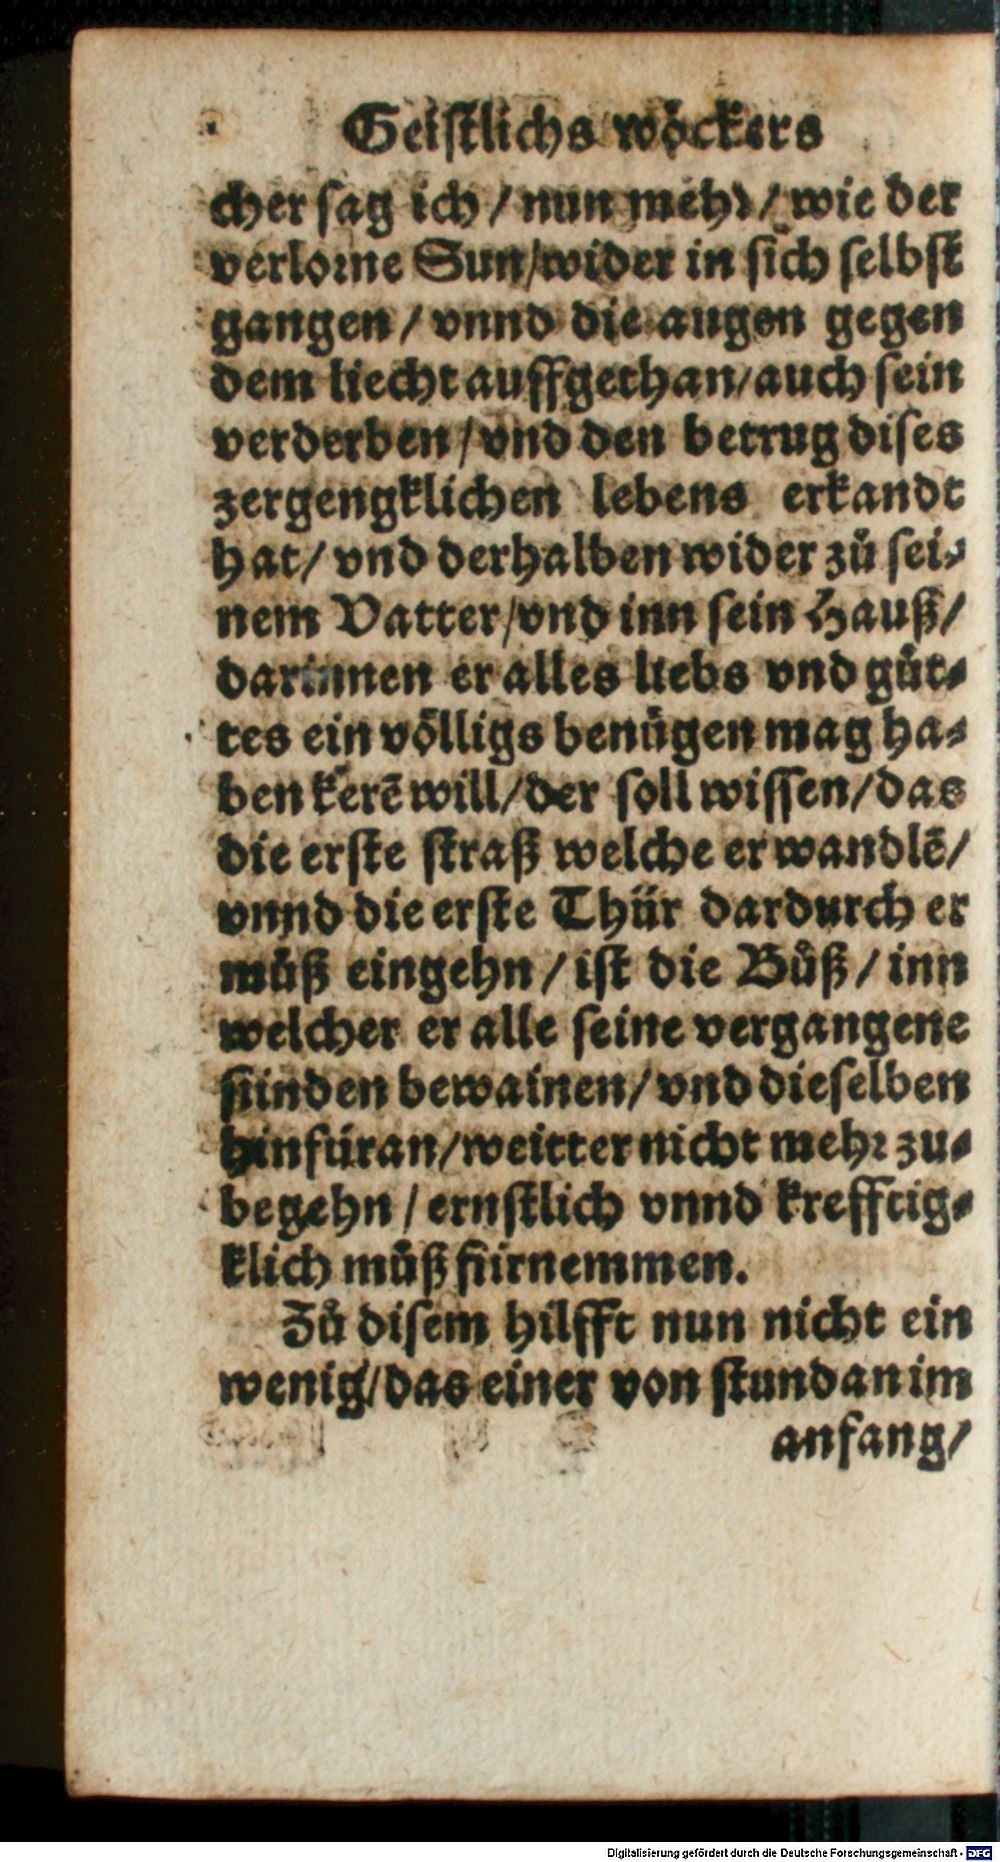 Geistlichs wöckers
cher sag ich / nun mehr / wie der
verlorne Sun / wider in sich selbst
gangen / vnnd die augen gegen
dem liecht auffgethan / auch sein
verderben / vnd den betrug dises
zergengklichen lebens erkandt
hat / vnd derhalben wider zů sei-
nem Vatter / vnd inn sein Hauß /
darinnen er alles liebs vnd gůt-
tes ein völligs benügen mag ha-
ben kerē will / der soll wissen / das
die erste straß welche er wandlē /
vnnd die erste Thür dardurch er
můß eingehn / ist die Bůß / inn
welcher er alle seine vergangene
sünden bewainen / vnd dieselben
hinfüran / weitter nicht mehr zu-
begehn / ernstlich vnnd krefftig-
klich můß fürnemmen.
Zů disem hilfft nun nicht ein
wenig / das einer von stund an im
anfang /
Digitalisierung gefördert durch die Deutsche Forschungsgemeinschaft - DFG